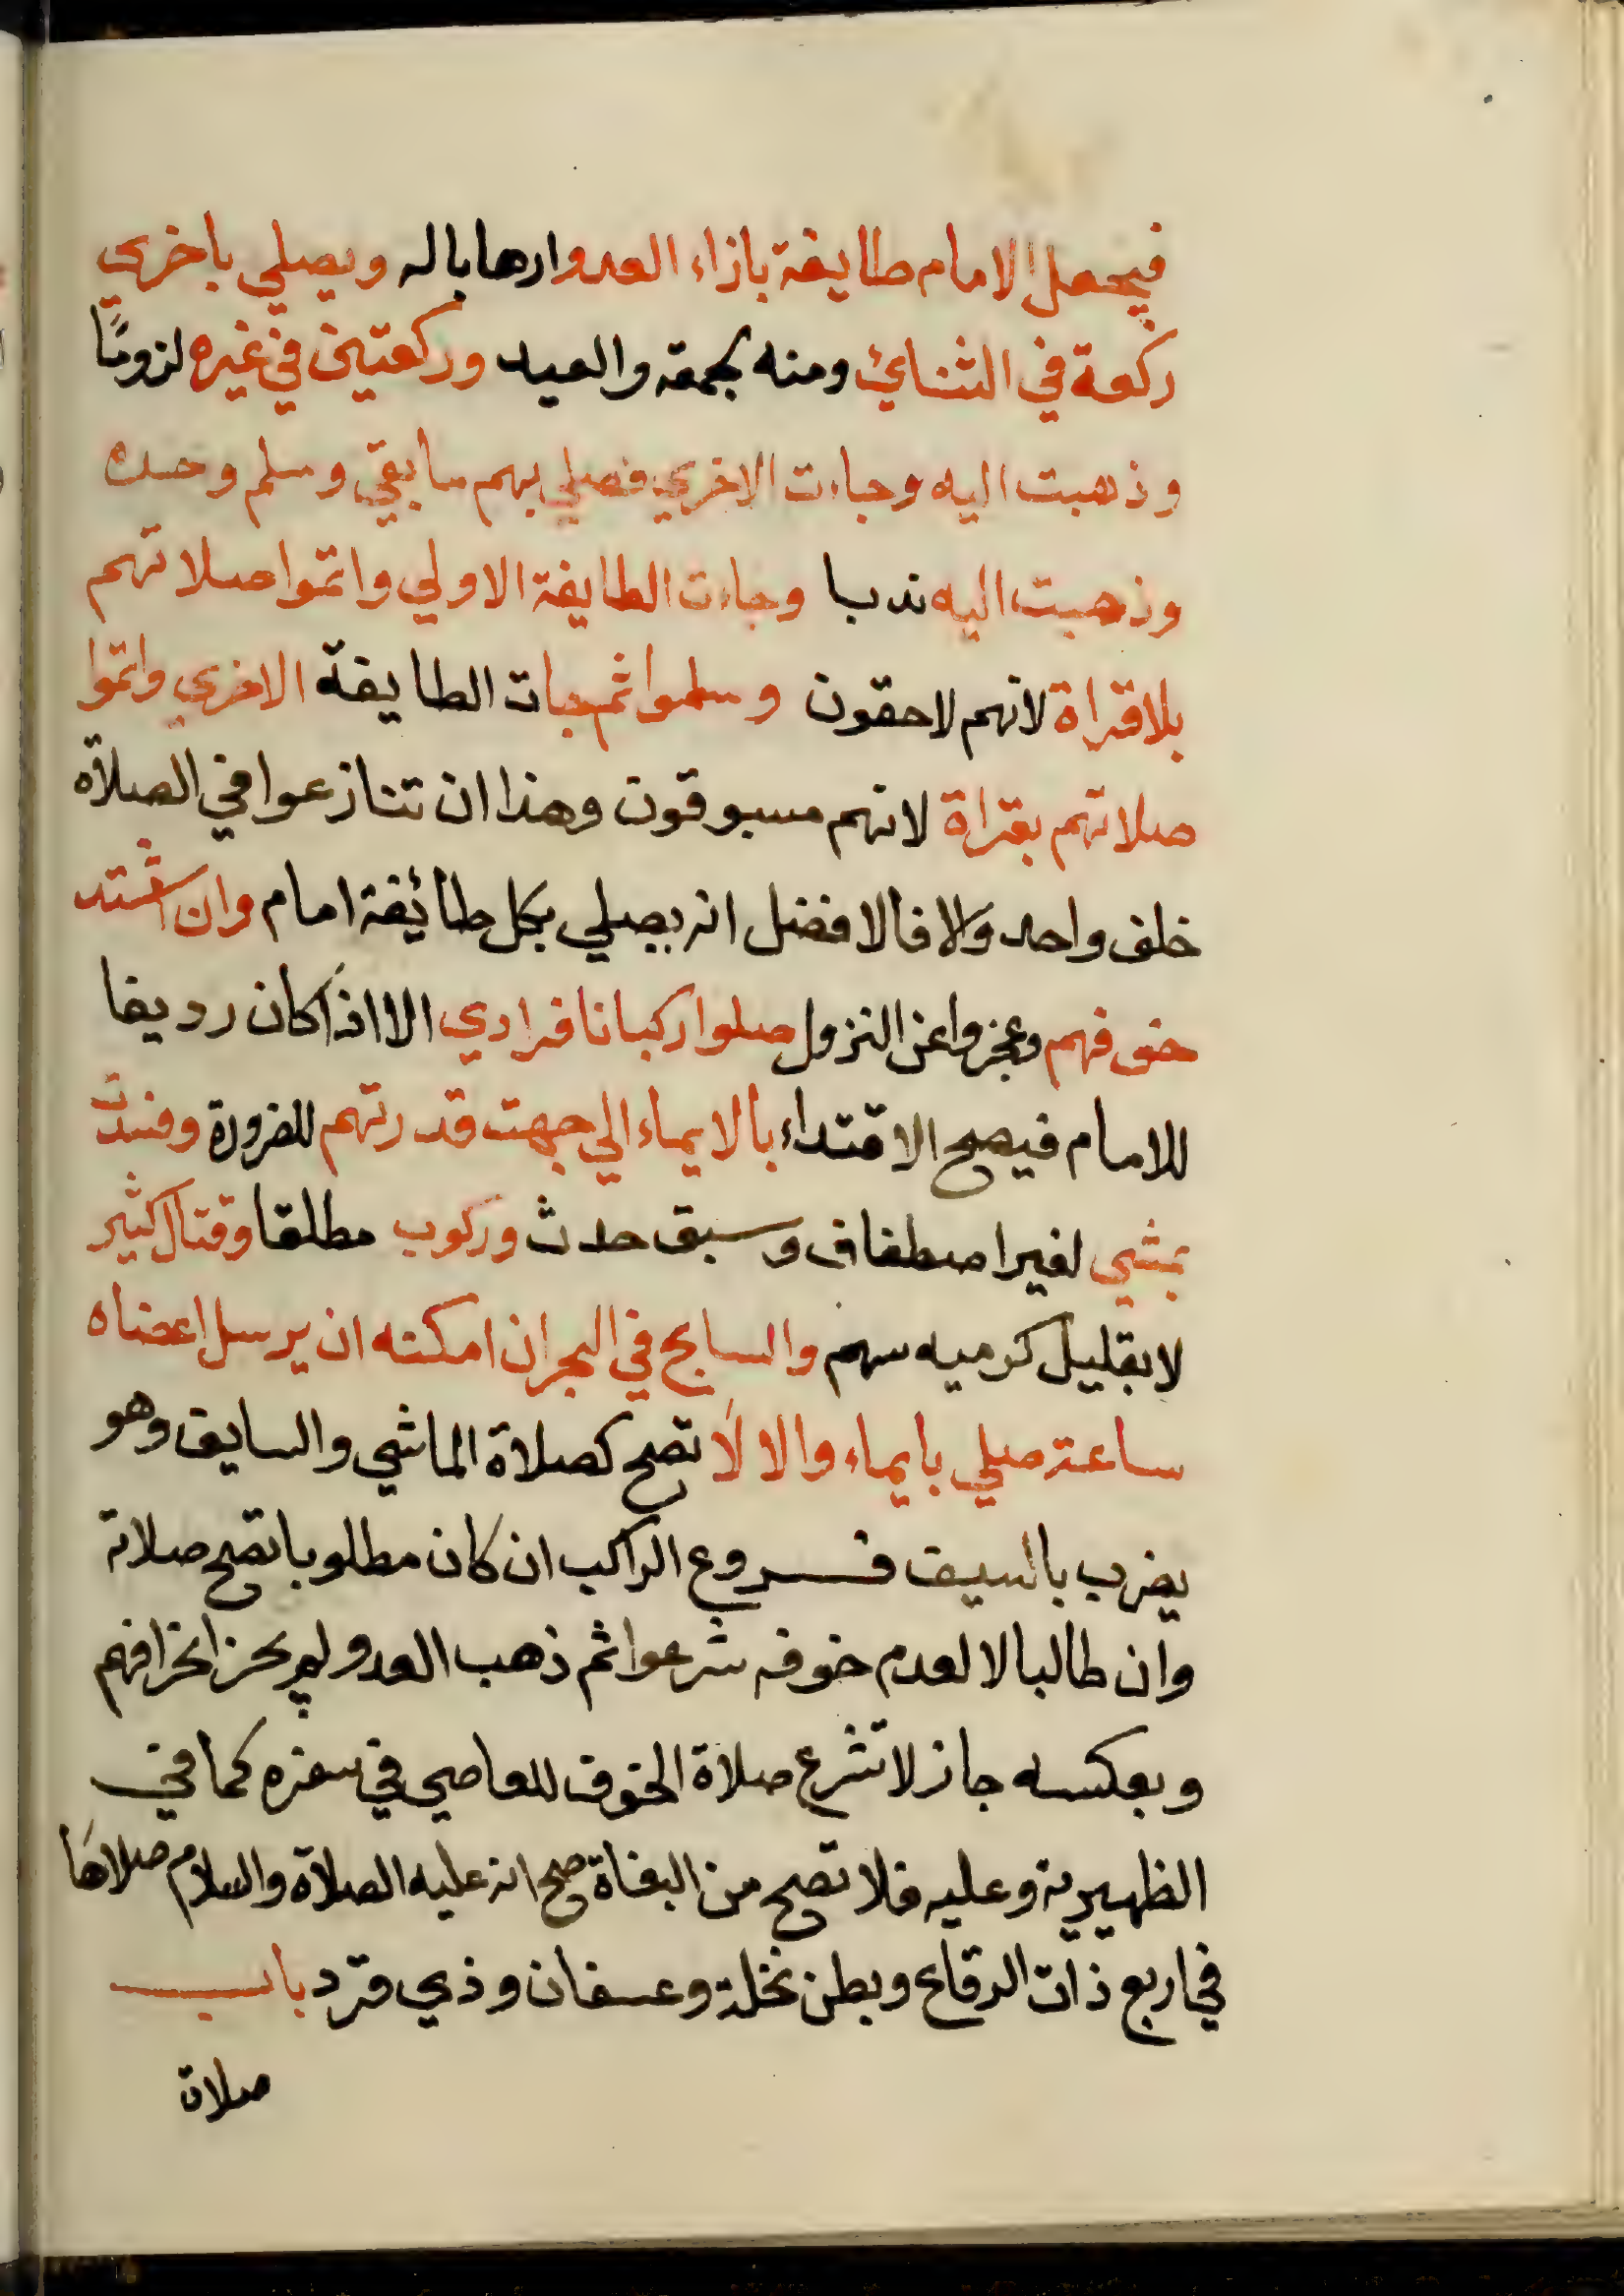 فيجعل الامام طايفة بازاء العدو ارهابا له ويصلي باخري
ركعة في الثنائي ومنه الجمعة والعيد وركعتين في غيره لزومًا
وذهبت اليه وجاءت الاخري فصلي بهم ما بقي وسلم وحده
وذهبت اليه ندبا وجاءت الطايفة الاولي واتموا صلاتهم
بلا قراة لانهم لاحقون وسلموا ثم جات الطايفة الاخري واتموا
صلاتهم بقراة لانهم مسبوقون وهذا ان تنازعوا في الصلاة
خلف واحد والا فالافضل انه يصلي بكل طائفة امام وان اشتد
خوفهم وعجزوا عن النزول صلوا ركبانا فرادي الا اذا كان رديفا
للامام فيصح الاقتداء بالايماء الي جهت قدرتهم للضرورة وفسدت
بمشي لغير اصطفاف وسبق حدث وركوب مطلقا وقتال كثير
لا بقليل كرمية سهم والسابح في البحر ان امكنه ان يرسل اعضاه
ساعة صلي بايماء والا لا تصح كصلاة الماشي والسايف وهو
يضرب بالسيف فروع الراكب ان كان مطلوبا تصح صلاته
وان طالبا لا لعدم خوفه شرعوا ثم ذهب العدو لم يجز انحرافهم
وبعكسه جاز لا تشرع صلاة الخوف للعاصي في سفره كما في
الظهيرية وعليه فلا تصح من البغاة صح انه عليه الصلاة والسلام صلاها
في اربع ذات الرقاع وبطن نخلة وعسفان وذي قرد باب
صلاة